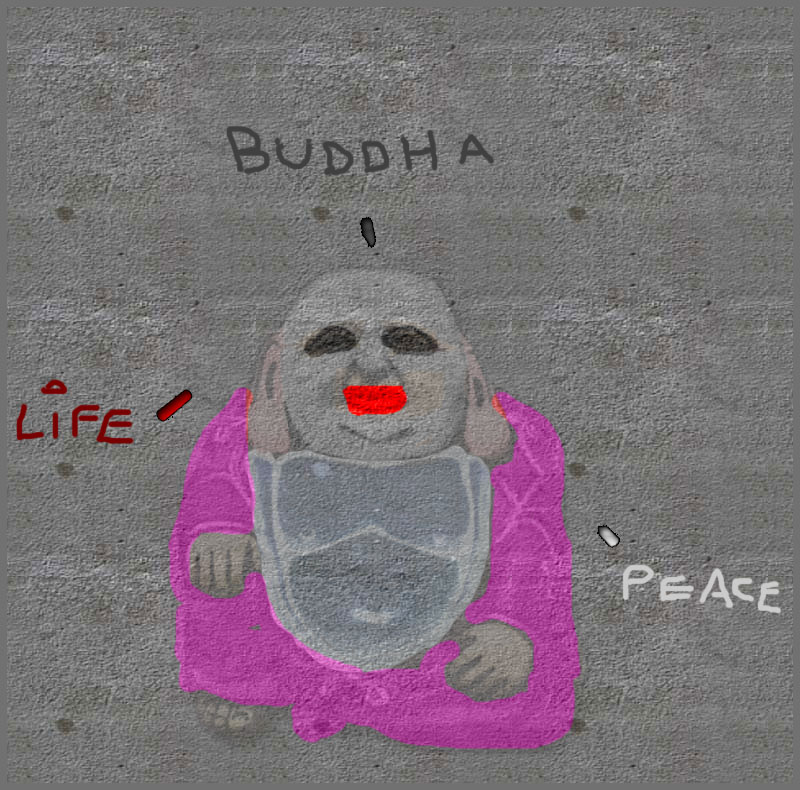 BUDDHA
LiFE
PEACE